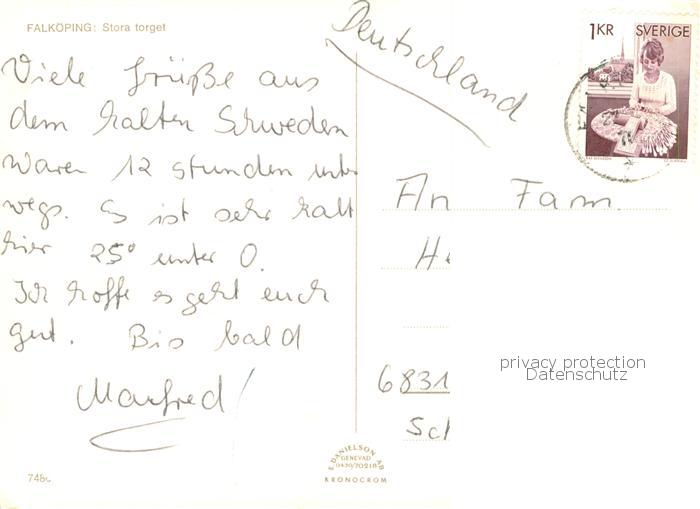 FALKÖPING: Stora torget
Viele Grüße aus
dem kalten Schweden
waren 12 stunden unter
wegs. Es ist sehr kalt
hier 25° unter 0.
Ich hoffe es geht euch
gut. Bis bald
Manfred!
Deutschland
1KR SVERIGE
An Fam.
6831
privacy protection
Datenschutz
E. DANIELSON AB
GENEVAD
0430/70218
KRONOCROM